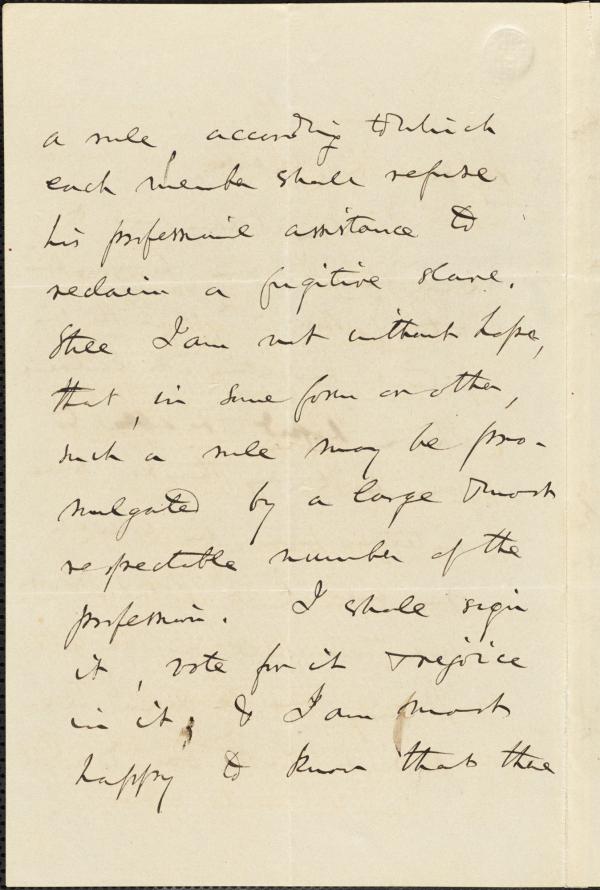 a rule, according to which
each member shall refuse
his professional assistance to
reclaim a fugitive slave.
Still I am not without hope,
that, in some form or other,
such a rule may be pro-
mulgated by a large & most
respectable number of the
profession. I shall sign
it, vote for it & rejoice
in it; & I am most
happy to know that